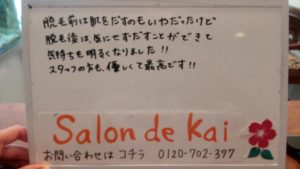 脱毛前は肌をだすのもいやだったけど
脱毛後は、気にせずだすことができて
気持ちも明るくなりました!!
スタッフの方も、優しくて最高です!!
Salon de Kai
お問い合わせは コチラ 0120-702-377